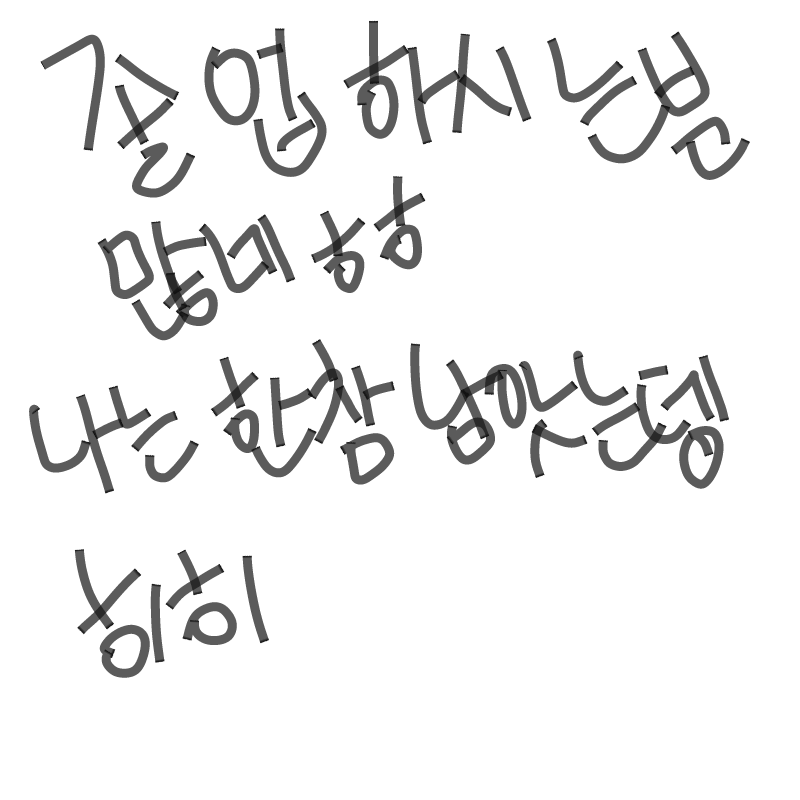 졸업하시는분
많네ㅎㅎ
나는 한참 남앗는뎅
히히